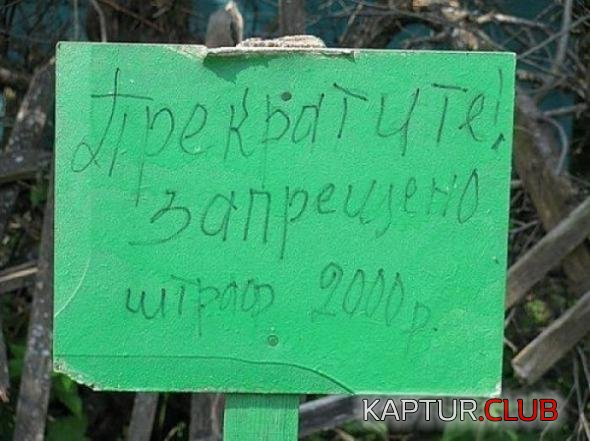 Прекратите!
запрещено
штраф 2000 р.
KAPTUR.CLUB